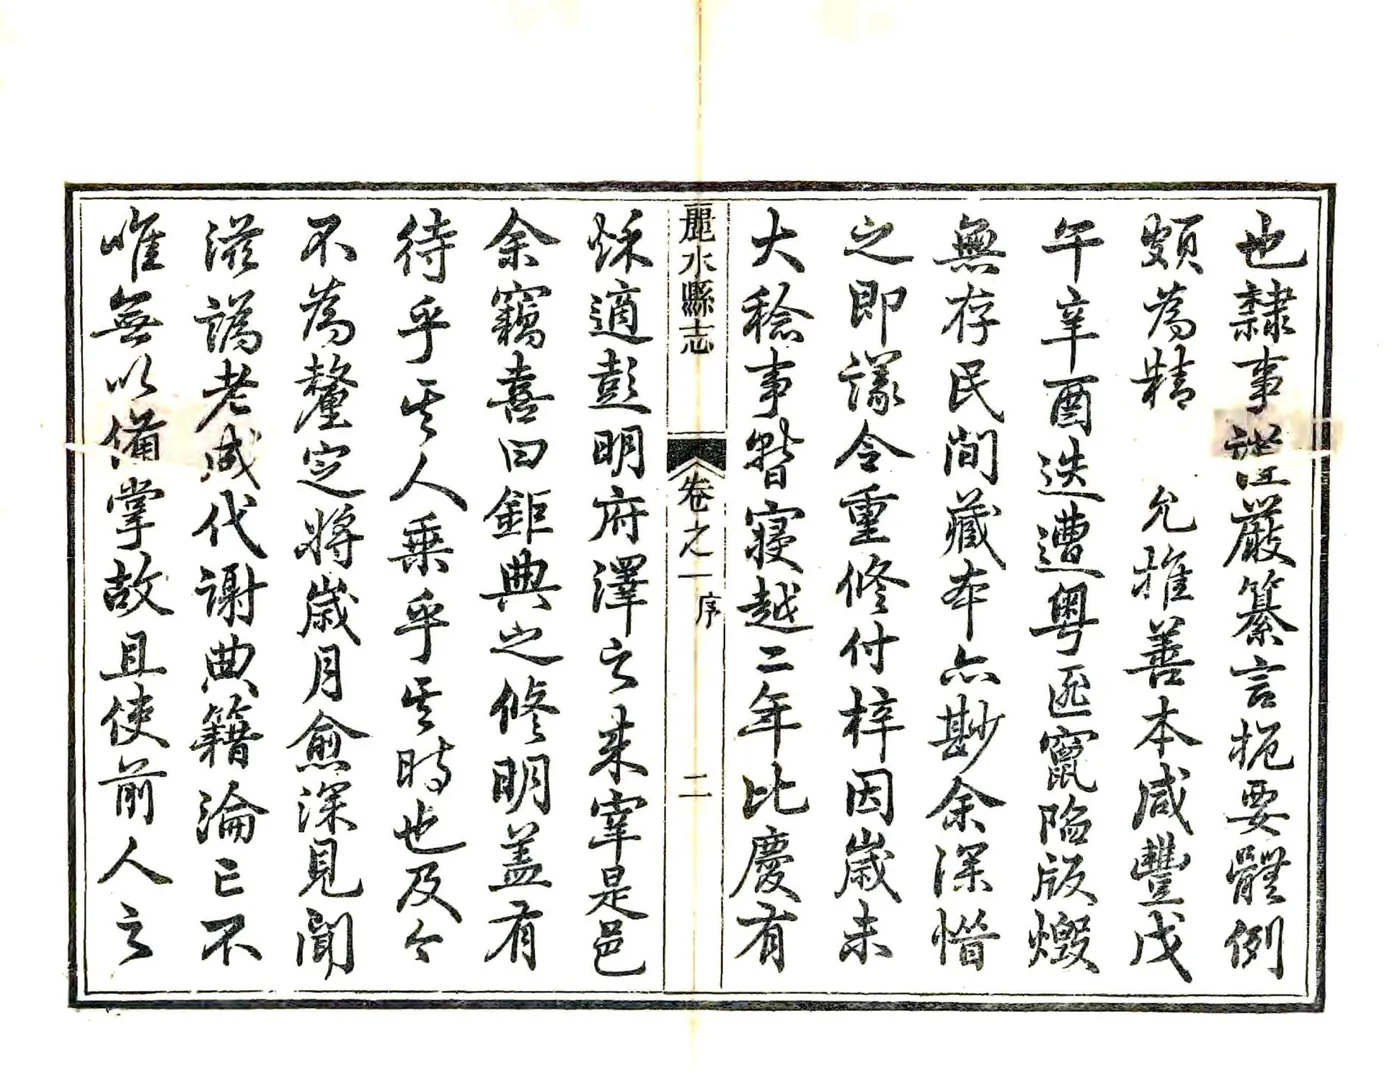 也隸事謹嚴纂言扼要體例
頗為精允推善本咸豐戊
午辛酉迭遭粵匪竄陷版燬
無存民間藏本亦尠余深惜
之即議令重修付梓因歲未
大稔事暫寢越二年比慶有
麗水縣志
卷之一
序
二
秌適彭明府澤之來宰是邑
余竊喜曰鉅典之修明蓋有
待乎其人乘乎其時也及今
不為釐定將歲月愈深見聞
滋譌老成代謝典籍淪亡不
唯無以備掌故且使前人之